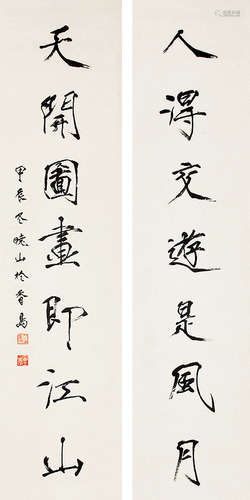 人得交遊是風月
天開圖畫即江山
甲辰冬曉山於香島